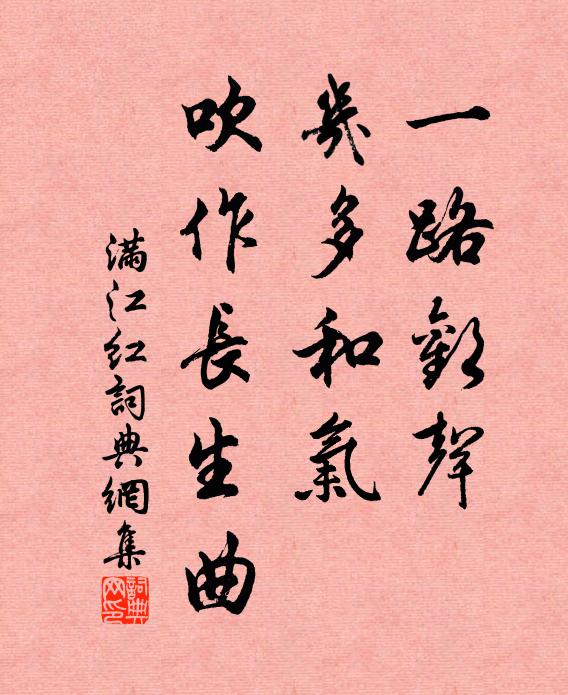 一路歡聲
幾多和氣
吹作長生曲
滿江紅詞典網集
詞典网印